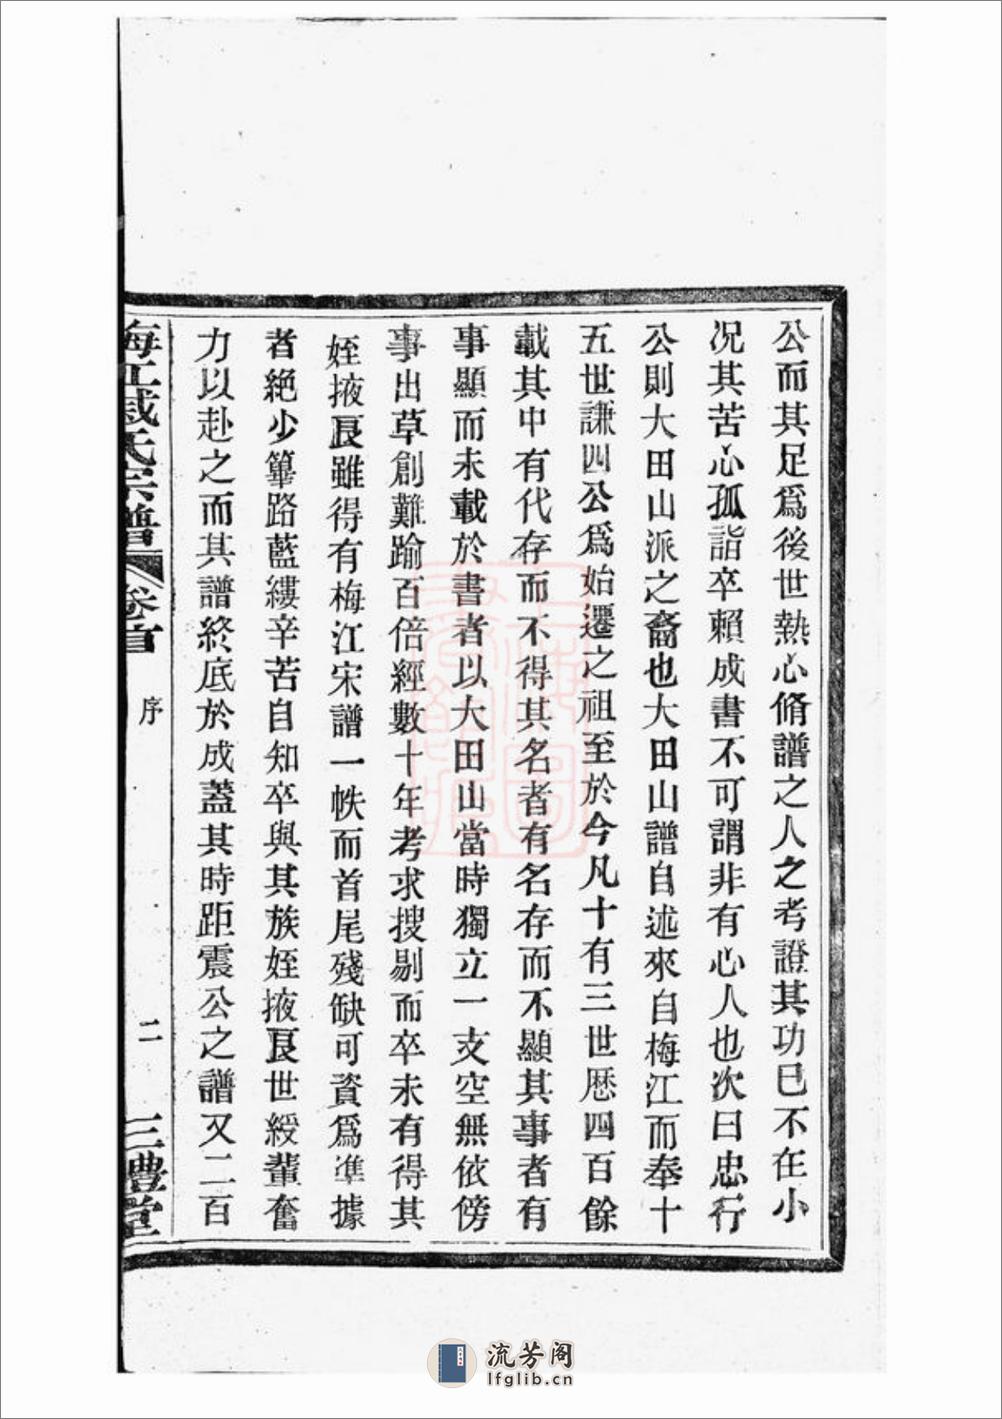 公而其足爲後世熱心脩譜之人之考證其功已不在小
况其苦心孤詣卒賴成書不可謂非有心人也次曰忠行
公則大田山派之裔也大田山譜自述來自梅江而奉十
五世謙四公爲始遷之祖至於今凡十有三世歷四百餘
載其中有代存而不得其名者有名存而不顯其事者有
事顯而未載於書者以大田山當時獨立一支空無依傍
事出草創難踰百倍經數十年考求搜剔而卒未有得其
姪掖良雖得有梅江宋譜一帙而首尾殘缺可資爲準據
者絶少篳路藍縷辛苦自知卒與其族姪掖良世綬輩奮
力以赴之而其譜終底於成蓋其時距震公之譜又二百
梅江戚氏宗譜 卷首 序 二 三禮堂
流芳阁
lfglib.cn